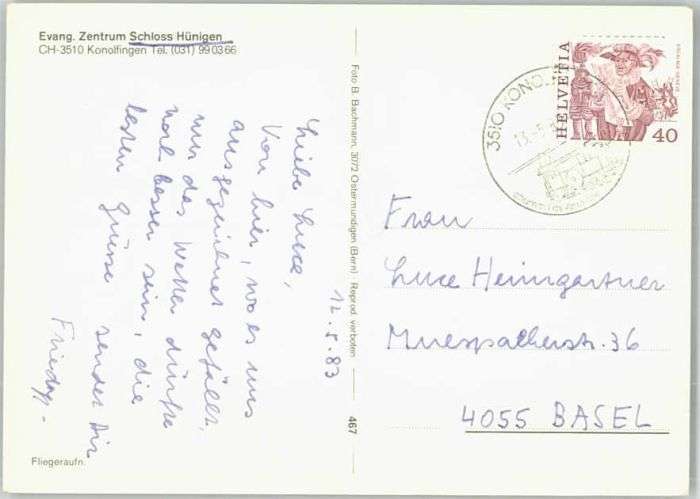 Evang. Zentrum Schloss Hünigen
CH-3510 Konolfingen Tel. (031) 99 03 66
12.5.83
Liebe Luce,
Von hier, wo es uns
ausgezeichnet gefällt,
nur das Wetter dürfte
noch besser sein, die
besten Grüsse sendet Dir
Foto B. Bachmann, 3072 Ostermundigen (Bern) Reprod. verboten
467
Fliegeraufn.
3510 KONO
13.-5.
HELVETIA
40
Frau
Luce Heimgartner
Muespacherstr. 36
4055 BASEL